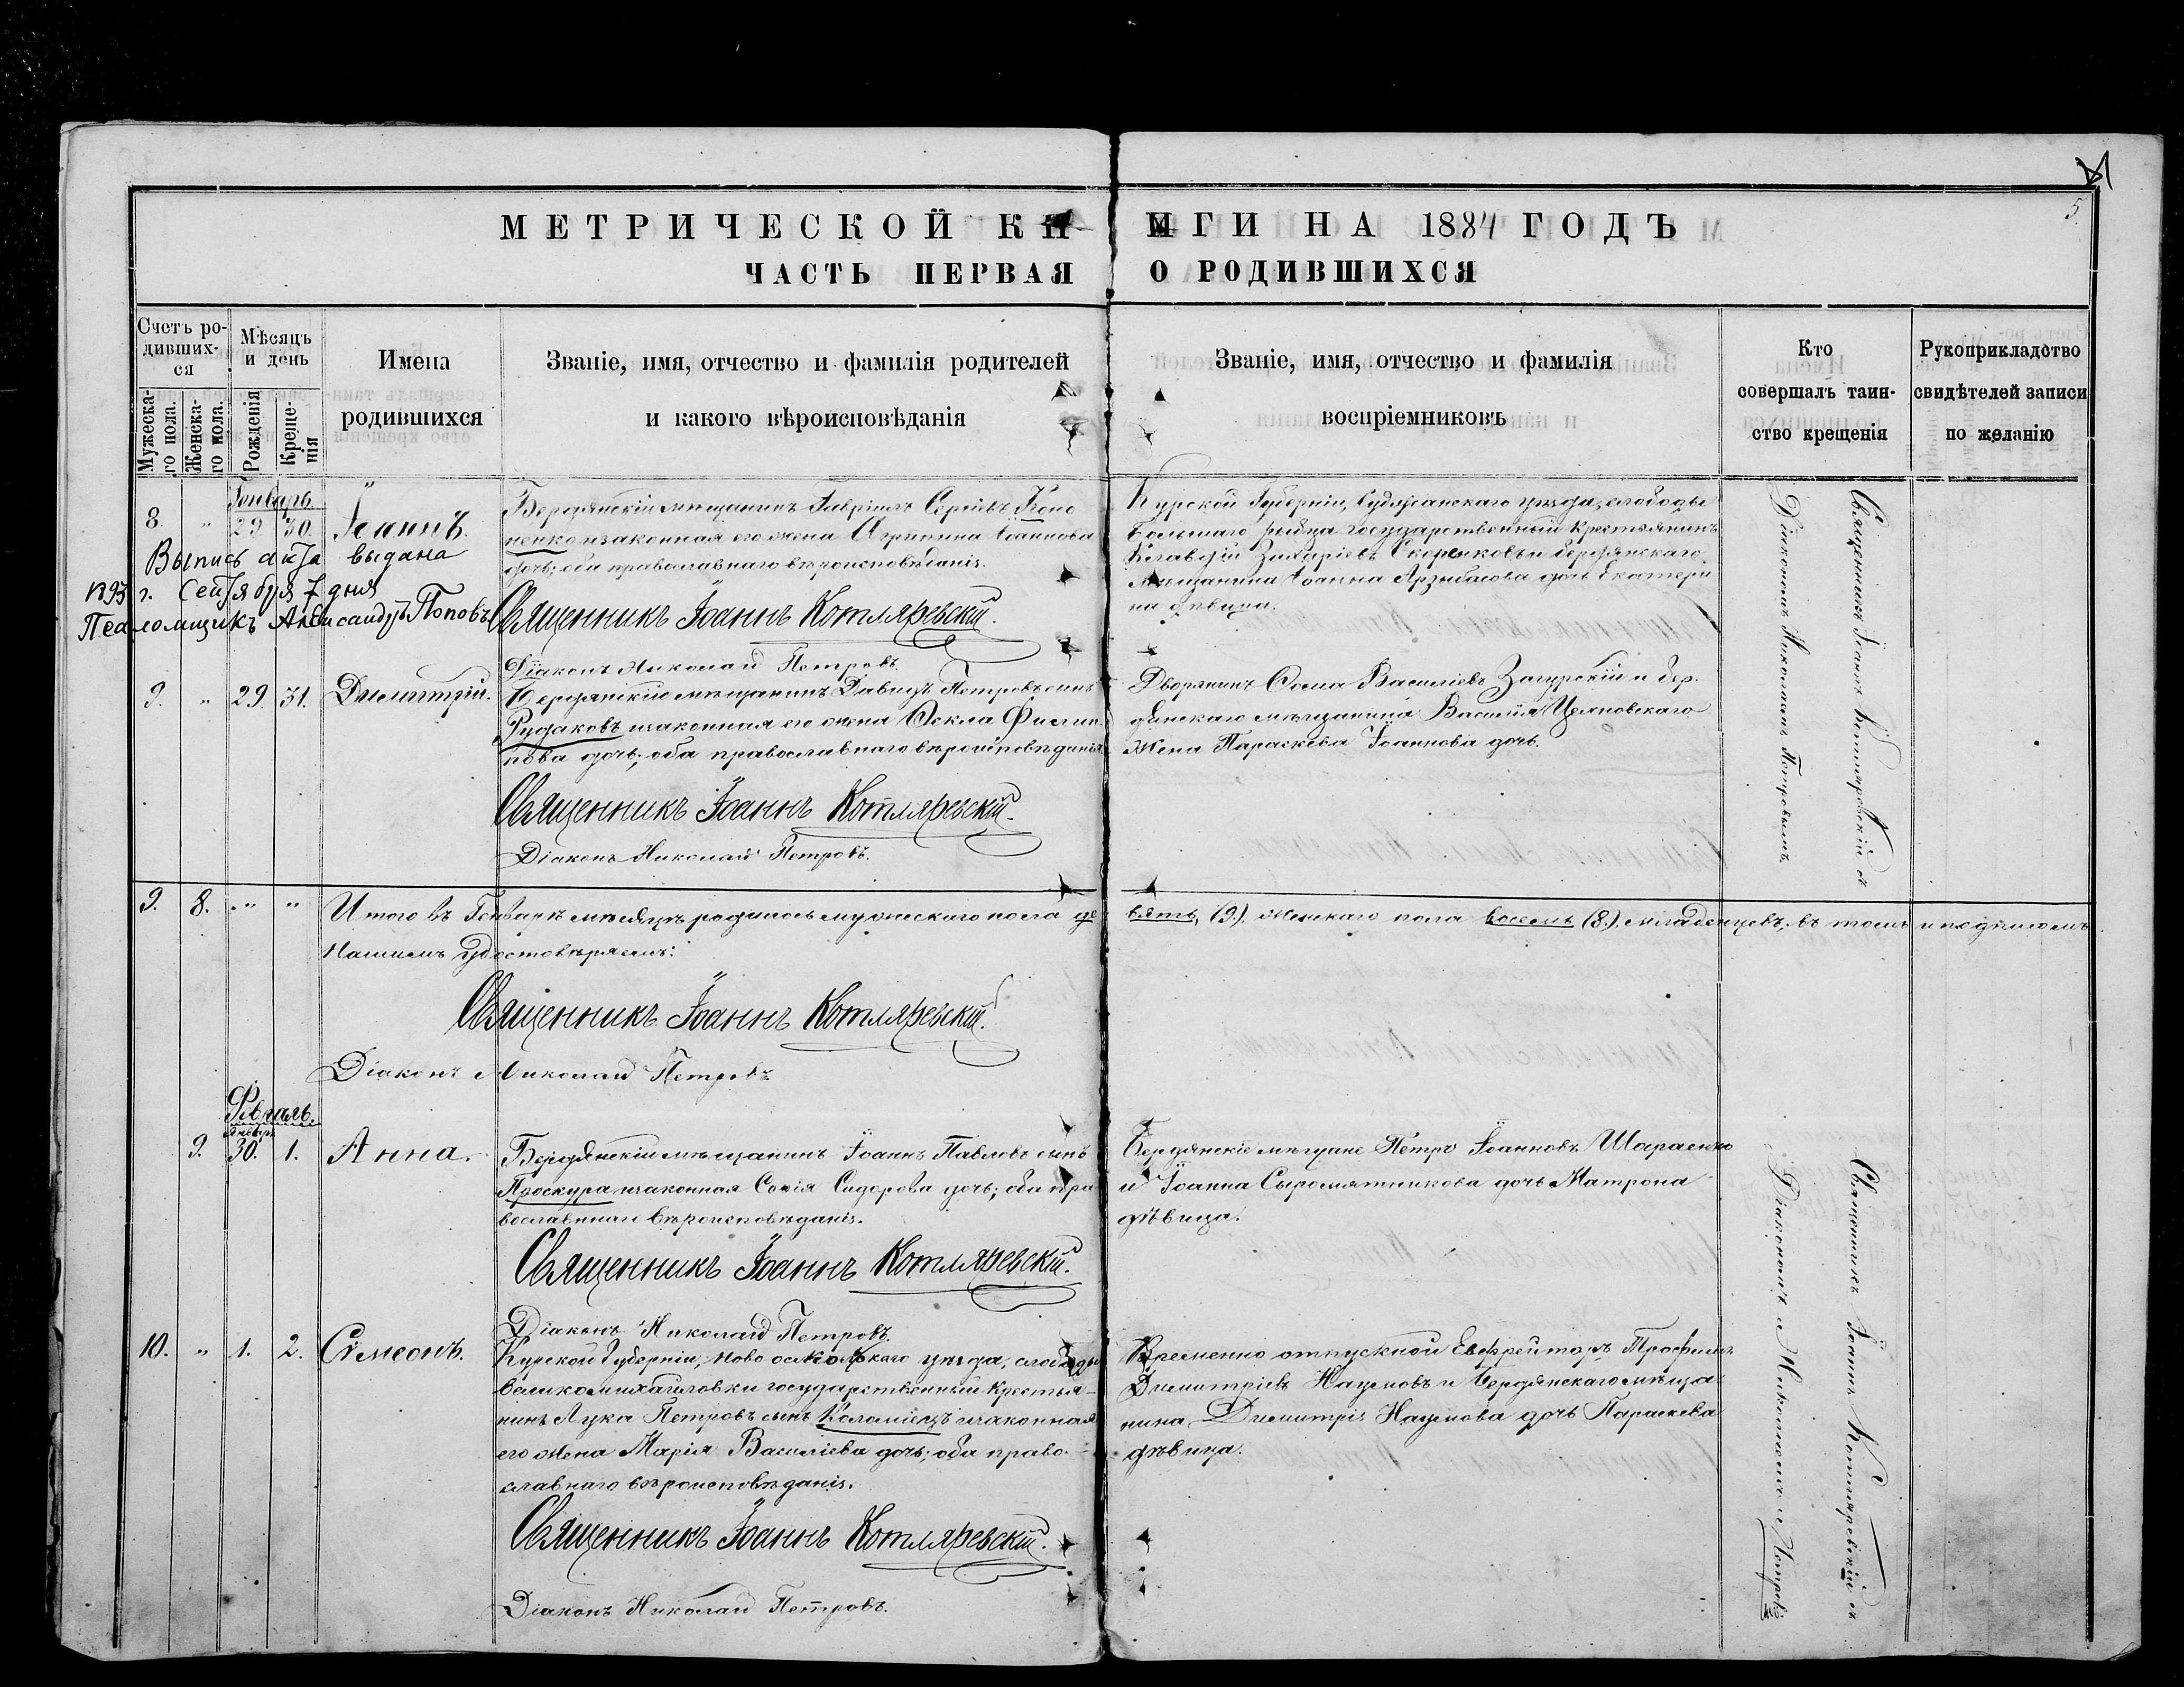 МЕТРИЧЕСКОЙ КНИГИ НА 1884 ГОДЪ
5
ЧАСТЬ ПЕРВАЯ О РОДИВШИХСЯ
Счетъ ро-
дивших-
ся
Мужеска-
го пола.
Женска-
го пола.
Мѣсяцъ
и день
Рожденія
Креще-
нія
Имена
родившихся
Званіе, имя, отчество и фамилія родителей
и какого вѣроисповѣданія
Званіе, имя, отчество и фамилія
воспріемниковъ
Кто
совершалъ таин-
ство крещенія
Рукоприкладство
свидѣтелей записи
по желанію
Генварь.
8. " 29 30. Іоаннъ.
Бердянскій мѣщанинъ Гавріилъ Сергіевъ Коно
ненко и законная его жена Агрипина Іоаннова
дочь; оба православнаго вѣроисповѣданія.
Священникъ Іоаннъ Котляревскій.
Діаконъ Николай Петровъ.
Курской Губерніи, Суджанскаго уѣзда, слободы
Большаго рыбца государственный крестьянинъ
Клавдій Захаріевъ и бердянскаго
мѣщанина Іоанна Арзыбасова дочь Екатери
на дѣвица.
Выпись акта выдана
1893 г. Сентября 7 дня
Псаломщикъ Александръ Поповъ
9. " 29. 31. Димитрій.
Бердянскій мѣщанинъ Давидъ Петровъ сынъ
Рудаковъ и законная его жена Фекла Филип
пова дочь; оба православнаго вѣроисповѣданія
Священникъ Іоаннъ Котляревскій.
Діаконъ Николай Петровъ.
Дворянинъ Фома Василіевъ Загурскій и бер.
дянскаго мѣщанина Василія Цеяновскаго
жена Параскева Іоаннова дочь.
Священникъ Іоаннъ Котляревскій съ
Діакономъ Николаемъ Петровымъ
9. 8. " " Итого въ Генварѣ мѣсяцѣ родилось мужескаго пола де вять, (9.), женскаго пола восемь (8.), младенцевъ; въ томъ и подписомъ
Нашимъ удостовѣряемъ:
Священникъ Іоаннъ Котляревскій.
Діаконъ Николай Петровъ
Февраль.
Январь
9. 30. 1. Анна.
Бердянскій мѣщанинъ Іоаннъ Павловъ сынъ
Проскура и законная Софія Сидорова дочь; оба пра
вославнаго вѣроисповѣданія.
Священникъ Іоаннъ Котляревскій.
Діаконъ Николай Петровъ.
Бердянскіе мѣщане Петръ Іоанновъ Шараенко
и Іоанна Сыромятникова дочь Матрона
дѣвица.
10. " 1. 2. Симеонъ.
Курской Губерніи, Ново оскольскаго уѣзда, слободы
Великомихайловки государственный крестья-
нинъ Лука Петровъ сынъ Коломіецъ и законная
его жена Марія Василіева дочь; оба право-
славнаго вѣроисповѣданія.
Священникъ Іоаннъ Котляревскій.
Діаконъ Николай Петровъ.
Временно отпускной Ефрейторъ Трофимъ
Димитріевъ Наумовъ и Бердянскаго мѣща
нина Димитрія Наумова дочь Параскева
дѣвица.
Священникъ Іоаннъ Котляревскій съ
Діакономъ Николаемъ Петровъ